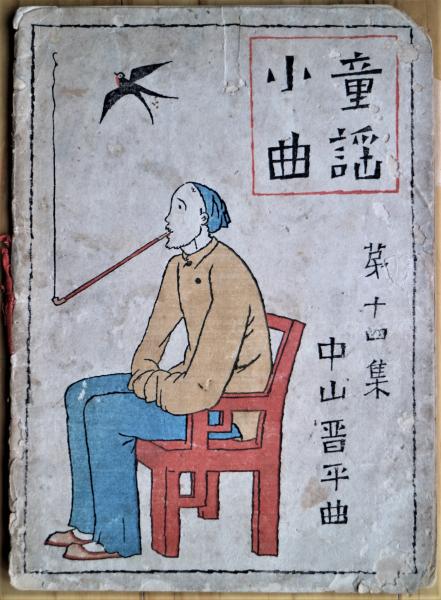 童謡
小曲
第十四集
中山晋平曲